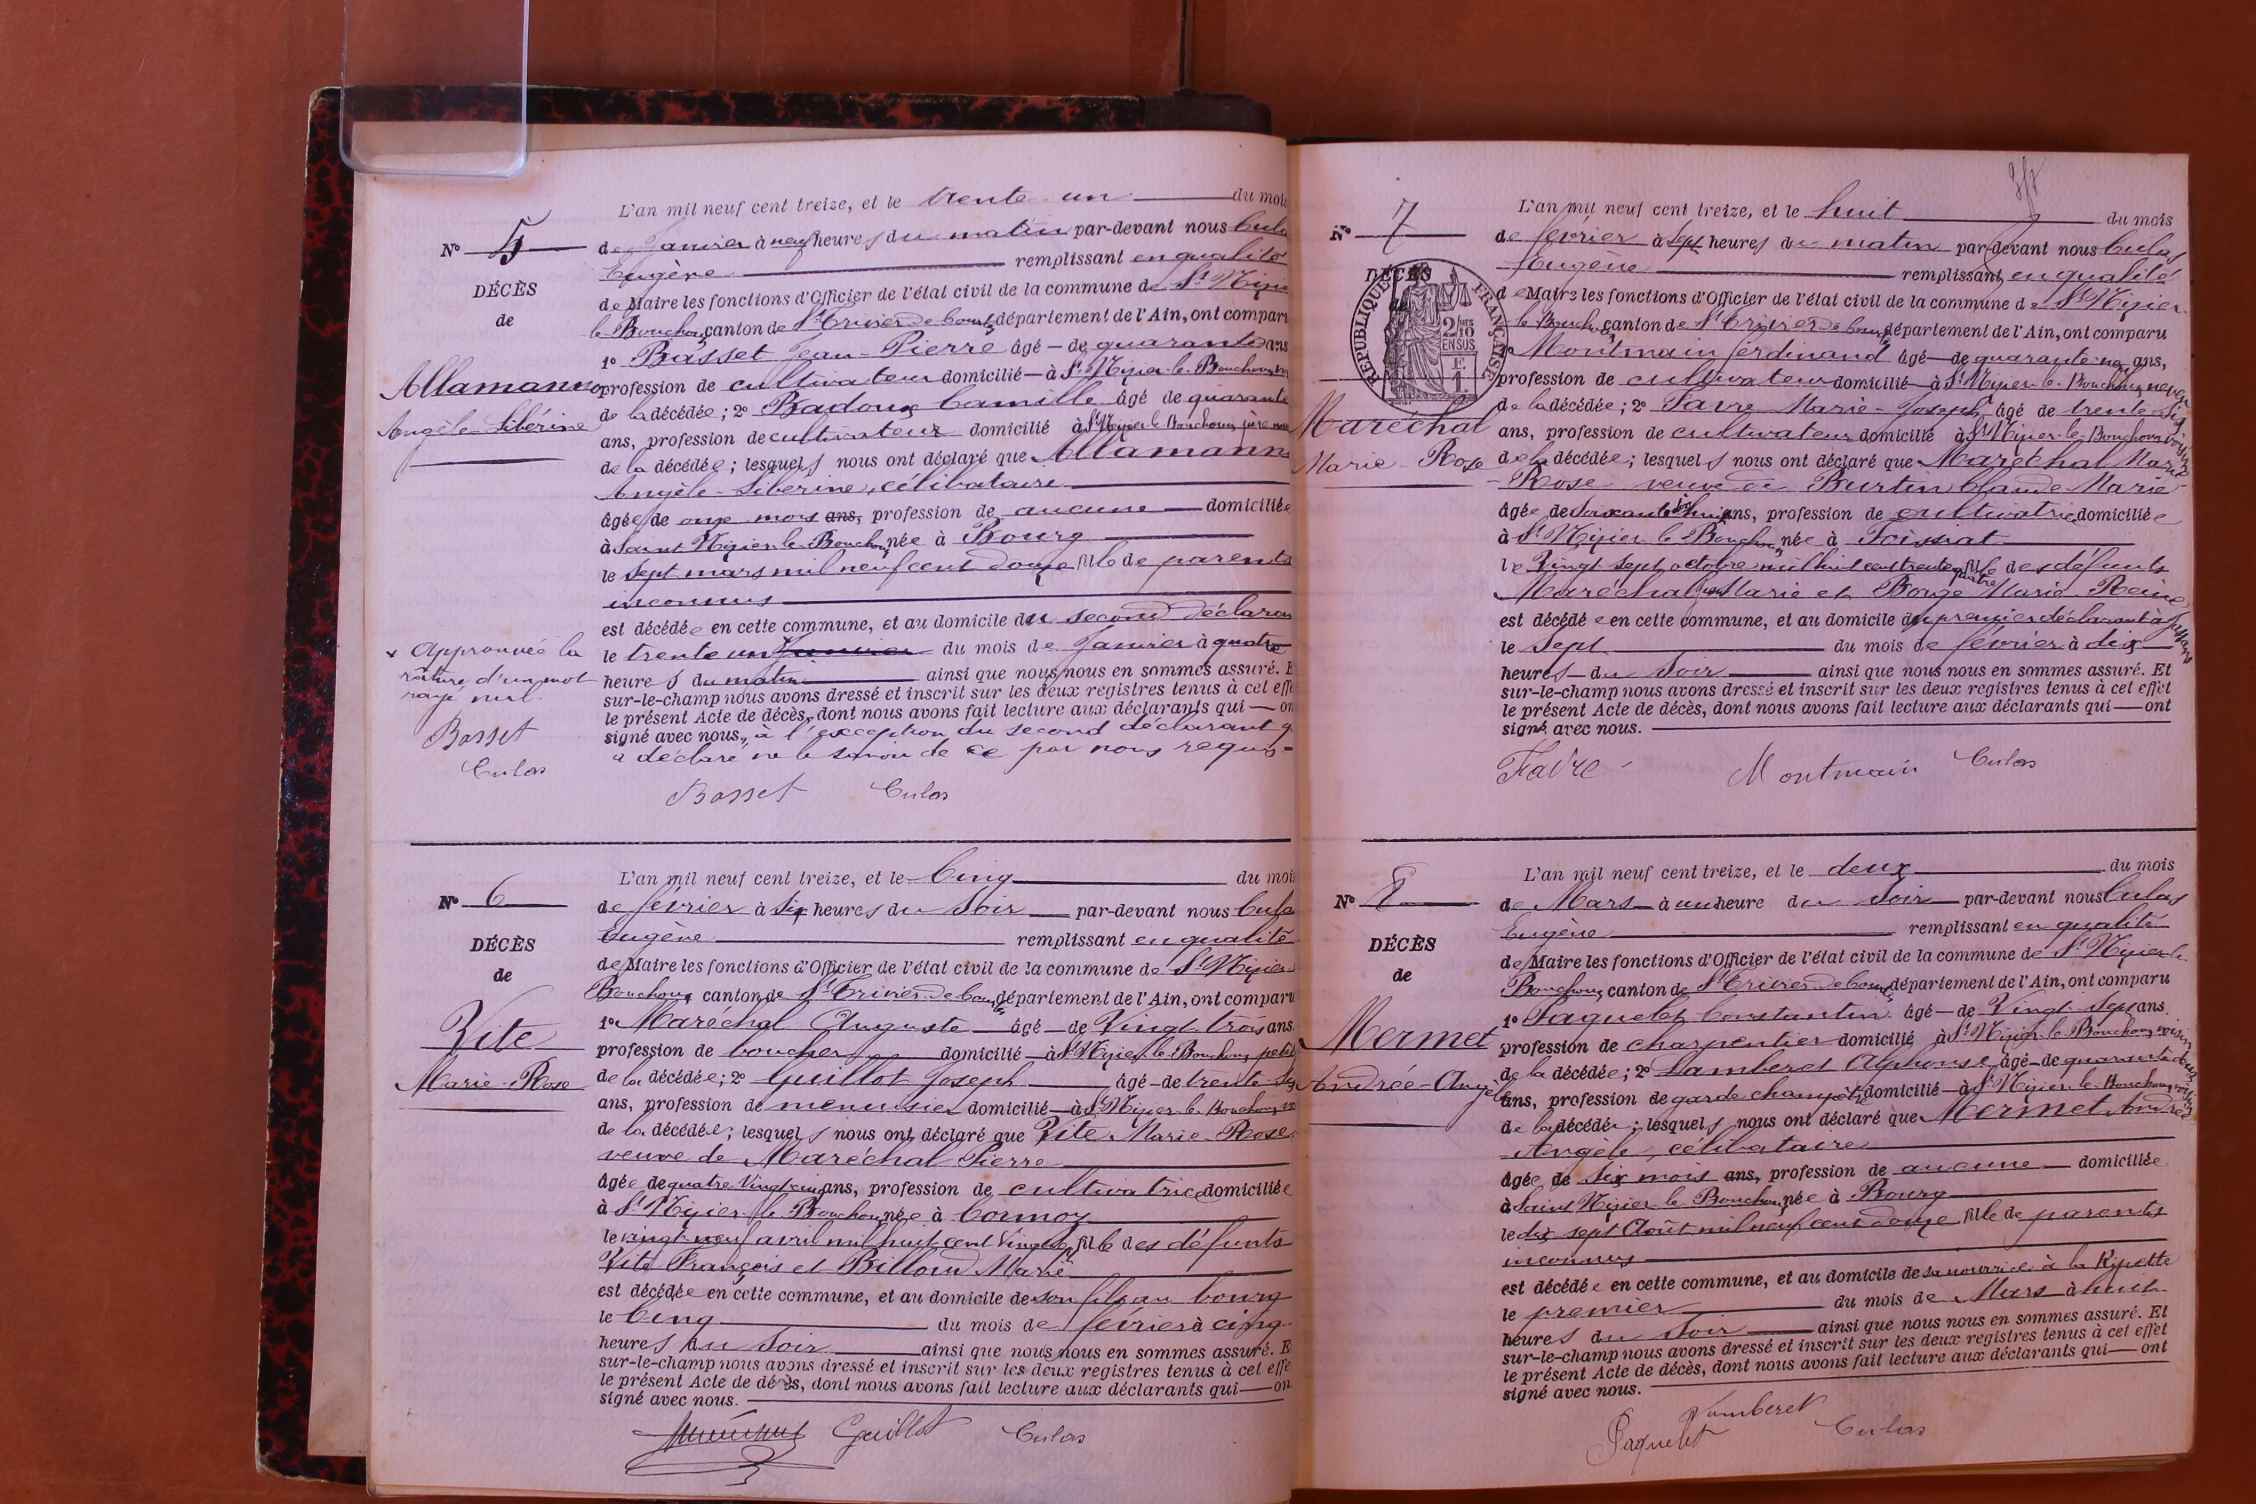 L'an mil neuf cent treize, et le trente un du mois
N° 5
de Janvier à neuf heures du matin par-devant nous Culas
Eugène remplissant en qualité
DÉCÈS
de
de Maire les fonctions d'Officier de l'état civil de la commune de St Nizier
le Bouchoux, canton de St Trivier de Courtes département de l'Ain, ont comparu
1° Basset Jean-Pierre âgé de quarante ans
Allamanno
Angèle Libérine
profession de cultivateur domicilié à St Nizier le Bouchoux
de la décédée; 2° Badoux Camille âgé de quarante
ans, profession de cultivateur domicilié à St Nizier le Bouchoux père
de la décédée; lesquels nous ont déclaré que Allamanno
Angèle-Liberine, célibataire
âgée de onze mois ans, profession de aucune domiciliée
à Saint Nizier le Bouchoux née à Bourg
le sept mars mil neuf cent douze fille de parents
inconnus
est décédée en cette commune, et au domicile du second déclarant
le trente un Janvier du mois de Janvier à quatre
heures du matin ainsi que nous nous en sommes assuré. Et
sur-le-champ nous avons dressé et inscrit sur les deux registres tenus à cet effet
le présent Acte de décès, dont nous avons fait lecture aux déclarants qui ont
signé avec nous, à l'exception du second déclarant q
a déclaré ne le savoir de ce par nous requis
x Approuvée la
rature d'un mot
rayé nul.
Basset
Culas
Basset Culas
L'an mil neuf cent treize, et le Cinq du mois
N° 6
de février à six heures du soir par-devant nous Culas
Eugène remplissant en qualité
DÉCÈS
de
de Maire les fonctions d'Officier de l'état civil de la commune de St Nizier
Bouchoux canton de St Trivier de Courtes département de l'Ain, ont comparu
1° Maréchal Auguste âgé de Vingt trois ans
Vite
Marie-Rose
profession de boucher domicilié à St Nizier le Bouchoux petit
de la décédée; 2° Guillot Joseph âgé de trente
ans, profession de menuisier domicilié à St Nizier le Bouchoux
de la décédée; lesquels nous ont déclaré que Vite Marie-Rose
veuve de Maréchal Pierre
âgée de quatre Vingt cinq ans, profession de cultivatrice domiciliée
à St Nizier le Bouchoux née à Cormoz
le vingt neuf avril mil huit cent Vingt sept fille des défunts
Vite François et Billoud Marie
est décédée en cette commune, et au domicile de son fils au bourg
le Cinq du mois de février à cinq
heures du soir ainsi que nous nous en sommes assuré. Et
sur-le-champ nous avons dressé et inscrit sur les deux registres tenus à cet effet
le présent Acte de décès, dont nous avons fait lecture aux déclarants qui ont
signé avec nous.
Maréchal Guillot Culas
L'an mil neuf cent treize, et le huit du mois
N° 7
de février à sept heures du matin par-devant nous Culas
Eugène remplissant en qualité
DÉCÈS
de
RÉPUBLIQUE FRANÇAISE
2/10 EN SUS
F. 1
de Maire les fonctions d'Officier de l'état civil de la commune de St Nizier
le Bouchoux, canton de St Trivier de Courtes département de l'Ain, ont comparu
1° Montmain ferdinand âgé de quarante neuf ans,
profession de cultivateur domicilié à St Nizier le Bouchoux neveu
Maréchal
Marie-Rose
de la décédée; 2° Favre Marie-Joseph âgé de trente six
ans, profession de cultivateur domicilié à St Nizier le Bouchoux voisin
de la décédée; lesquels nous ont déclaré que Maréchal Marie
Rose veuve de Burtin Claude Marie
âgée de soixante dix huit ans, profession de cultivatrice domiciliée
à St Nizier le Bouchoux née à Foissiat
le Vingt sept octobre mil huit cent trente quatre fille des défunts
Maréchal Jean Marie et Bouge Marie-Reine
est décédée en cette commune, et au domicile du premier déclarant à
le sept du mois de février à dix
heures du soir ainsi que nous nous en sommes assuré. Et
sur-le-champ nous avons dressé et inscrit sur les deux registres tenus à cet effet
le présent Acte de décès, dont nous avons fait lecture aux déclarants qui ont
signé avec nous.
Favre Montmain Culas
L'an mil neuf cent treize, et le deux du mois
N° 8
de Mars à une heure du soir par-devant nous Culas
Eugène remplissant en qualité
DÉCÈS
de
de Maire les fonctions d'Officier de l'état civil de la commune de St Nizier le
Bouchoux, canton de St Trivier de Courtes département de l'Ain, ont comparu
1° Paquelet Constantin âgé de Vingt sept ans
Mermet
Andrée-Angèle
profession de charpentier domicilié à St Nizier le Bouchoux voisin
de la décédée; 2° Lamberet Alphonse âgé de quarante deux
ans, profession de garde champêtre domicilié à St Nizier le Bouchoux voisin
de la décédée; lesquels nous ont déclaré que Mermet Andrée
Angèle, célibataire
âgée de six mois ans, profession de aucune domiciliée
à Saint Nizier le Bouchoux née à Bourg
le dix sept Août mil neuf cent douze fille de parents
inconnus
est décédée en cette commune, et au domicile de sa nourrice à la Ripette
le premier du mois de Mars à huit
heures du soir ainsi que nous nous en sommes assuré. Et
sur-le-champ nous avons dressé et inscrit sur les deux registres tenus à cet effet
le présent Acte de décès, dont nous avons fait lecture aux déclarants qui ont
signé avec nous.
Paquelet Lamberet Culas